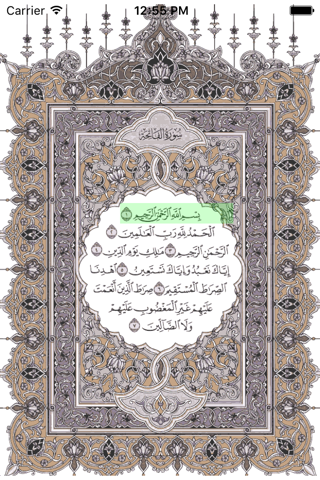 Carrier 12:55 PM
سُورَةُ الْفَاتِحَةِ
بِسْمِ اللَّهِ الرَّحْمَٰنِ الرَّحِيمِ ١
الْحَمْدُ لِلَّهِ رَبِّ الْعَالَمِينَ ٢
الرَّحْمَٰنِ الرَّحِيمِ ٣ مَالِكِ يَوْمِ الدِّينِ ٤
إِيَّاكَ نَعْبُدُ وَإِيَّاكَ نَسْتَعِينُ ٥ اهْدِنَا
الصِّرَاطَ الْمُسْتَقِيمَ ٦ صِرَاطَ الَّذِينَ أَنْعَمْتَ
عَلَيْهِمْ غَيْرِ الْمَغْضُوبِ عَلَيْهِمْ
وَلَا الضَّالِّينَ ٧